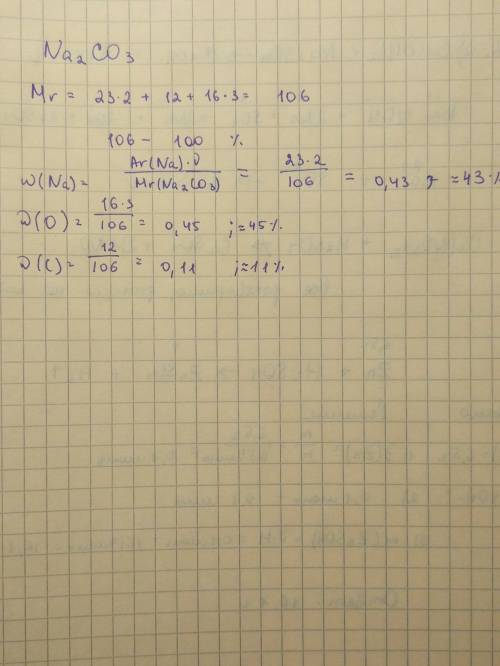 Na₂CO₃
Mr = 23·2 + 12 + 16·3 = 106
106 - 100 %
W(Na) = Ar(Na)·D / Mr(Na₂CO₃) = 23·2 / 106 = 0,43 ≈ 43%
D(O) = 16·3 / 106 = 0,45 ; ≈ 45%
D(C) = 12 / 106 = 0,11 ; ≈ 11%